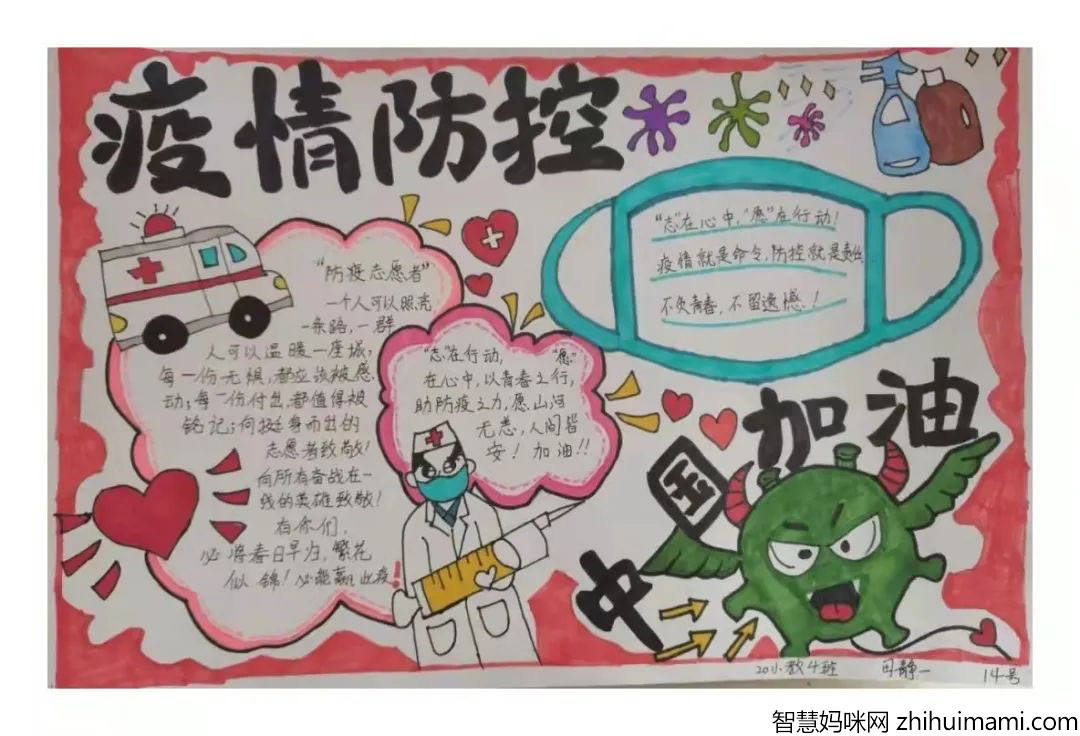 疫情防控
"志"在心中，"愿"在行动！
疫情就是命令，防控就是责任
不负青春，不留遗憾.！
"防疫志愿者"
一个人可以照亮
一条路，一群
人可以温暖一座城；
每一份无惧，都应该被感
动；每一份付出，都值得被
铭记；向挺身而出的
志愿者致敬！
向所有奋战在一
线的英雄致敬！
有你们，
必将春日早归，繁花
似锦！必能赢此疫！
"志"在行动，"愿"
在心中，以青春之行，
助防疫之力，愿山河
无恙，人间皆
安！加油！！
中国加油
20小教4班 静一 14号
智慧妈咪网 zhihuimami.com